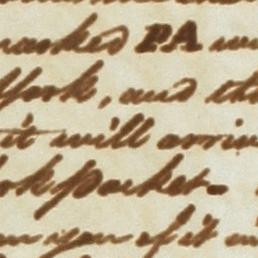 marked PA
York, and th
it will arriv
ork packet.
you if it